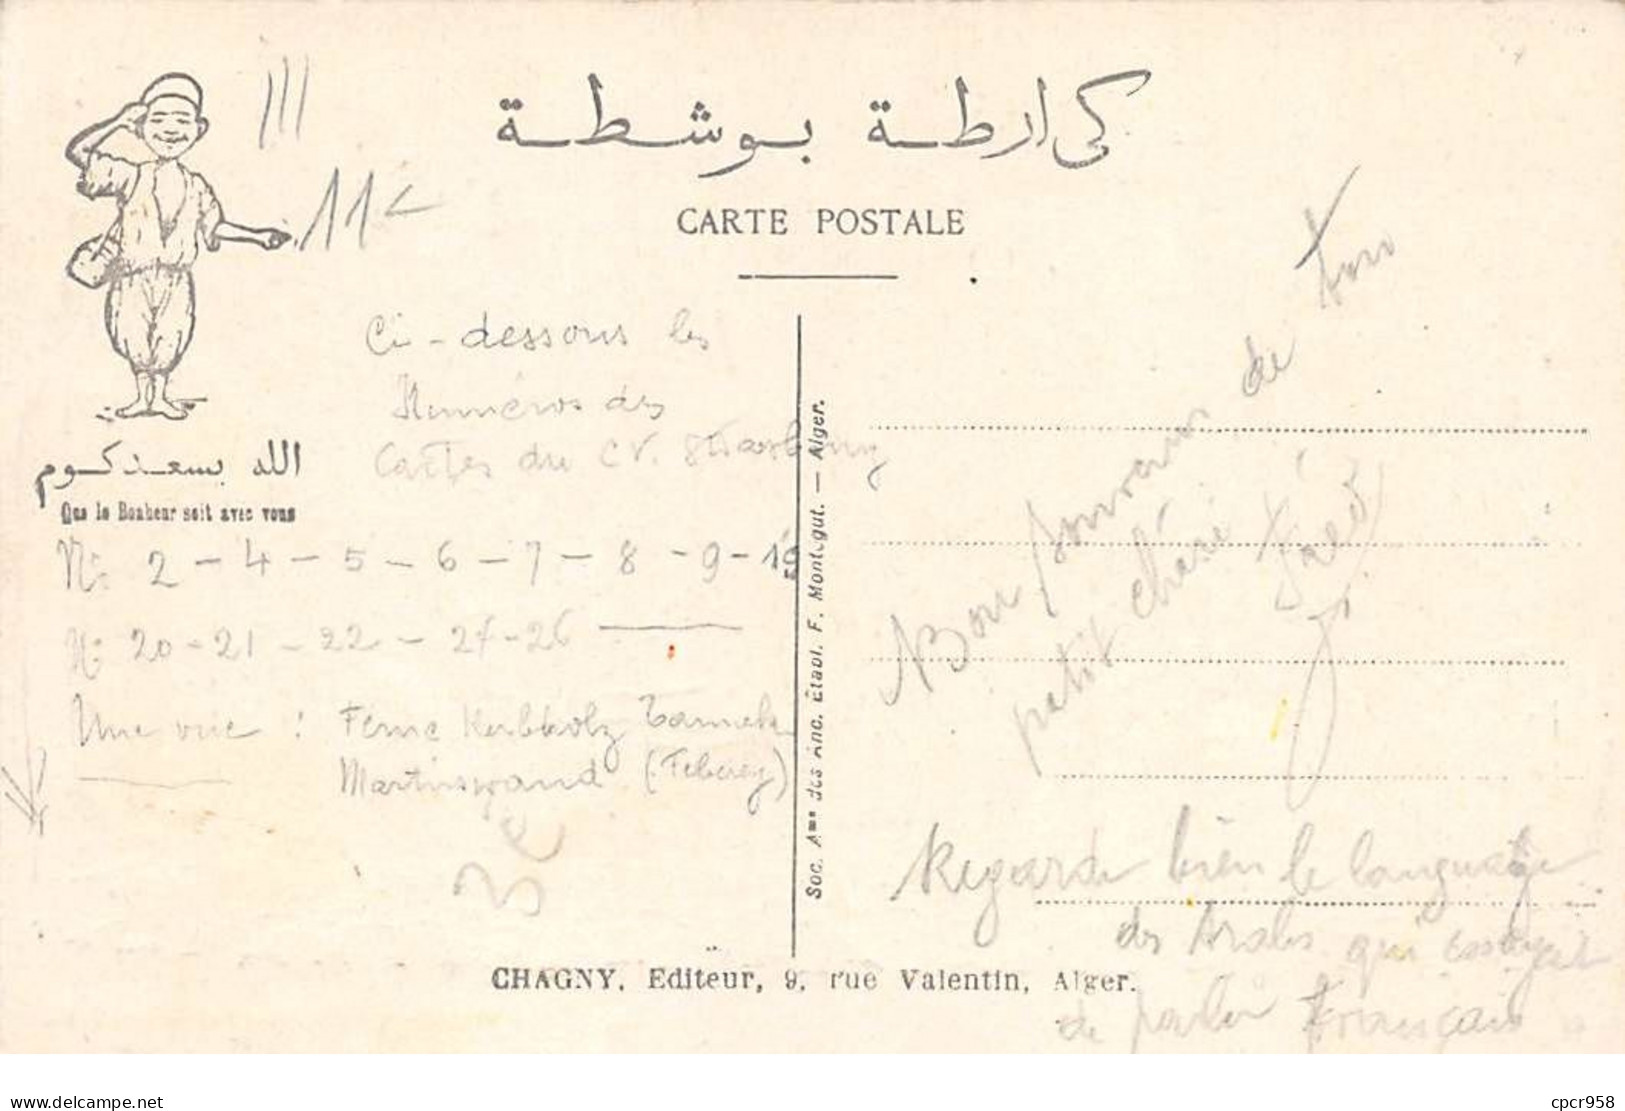 كارطة بوشطة
CARTE POSTALE
111
11
الله يسعدكوم
Que le Bonheur soit avec vous
Ci-dessous les
Numéros des
Cartes du CV. Strasbourg
N: 2 - 4 - 5 - 6 - 7 - 8 - 9 - 19
N: 20 - 21 - 22 - 24 - 26
Une vue : Ferme
(
)
3e
Soc. Ame des Anc. Établ. F. Montégut. — Alger.
Bon souvenir de ton
petit chéri
Regarde bien le language
des Arabes qui essayent
de parler Français
CHAGNY, Editeur, 9, rue Valentin, Alger.
www.delcampe.net
cpcr958